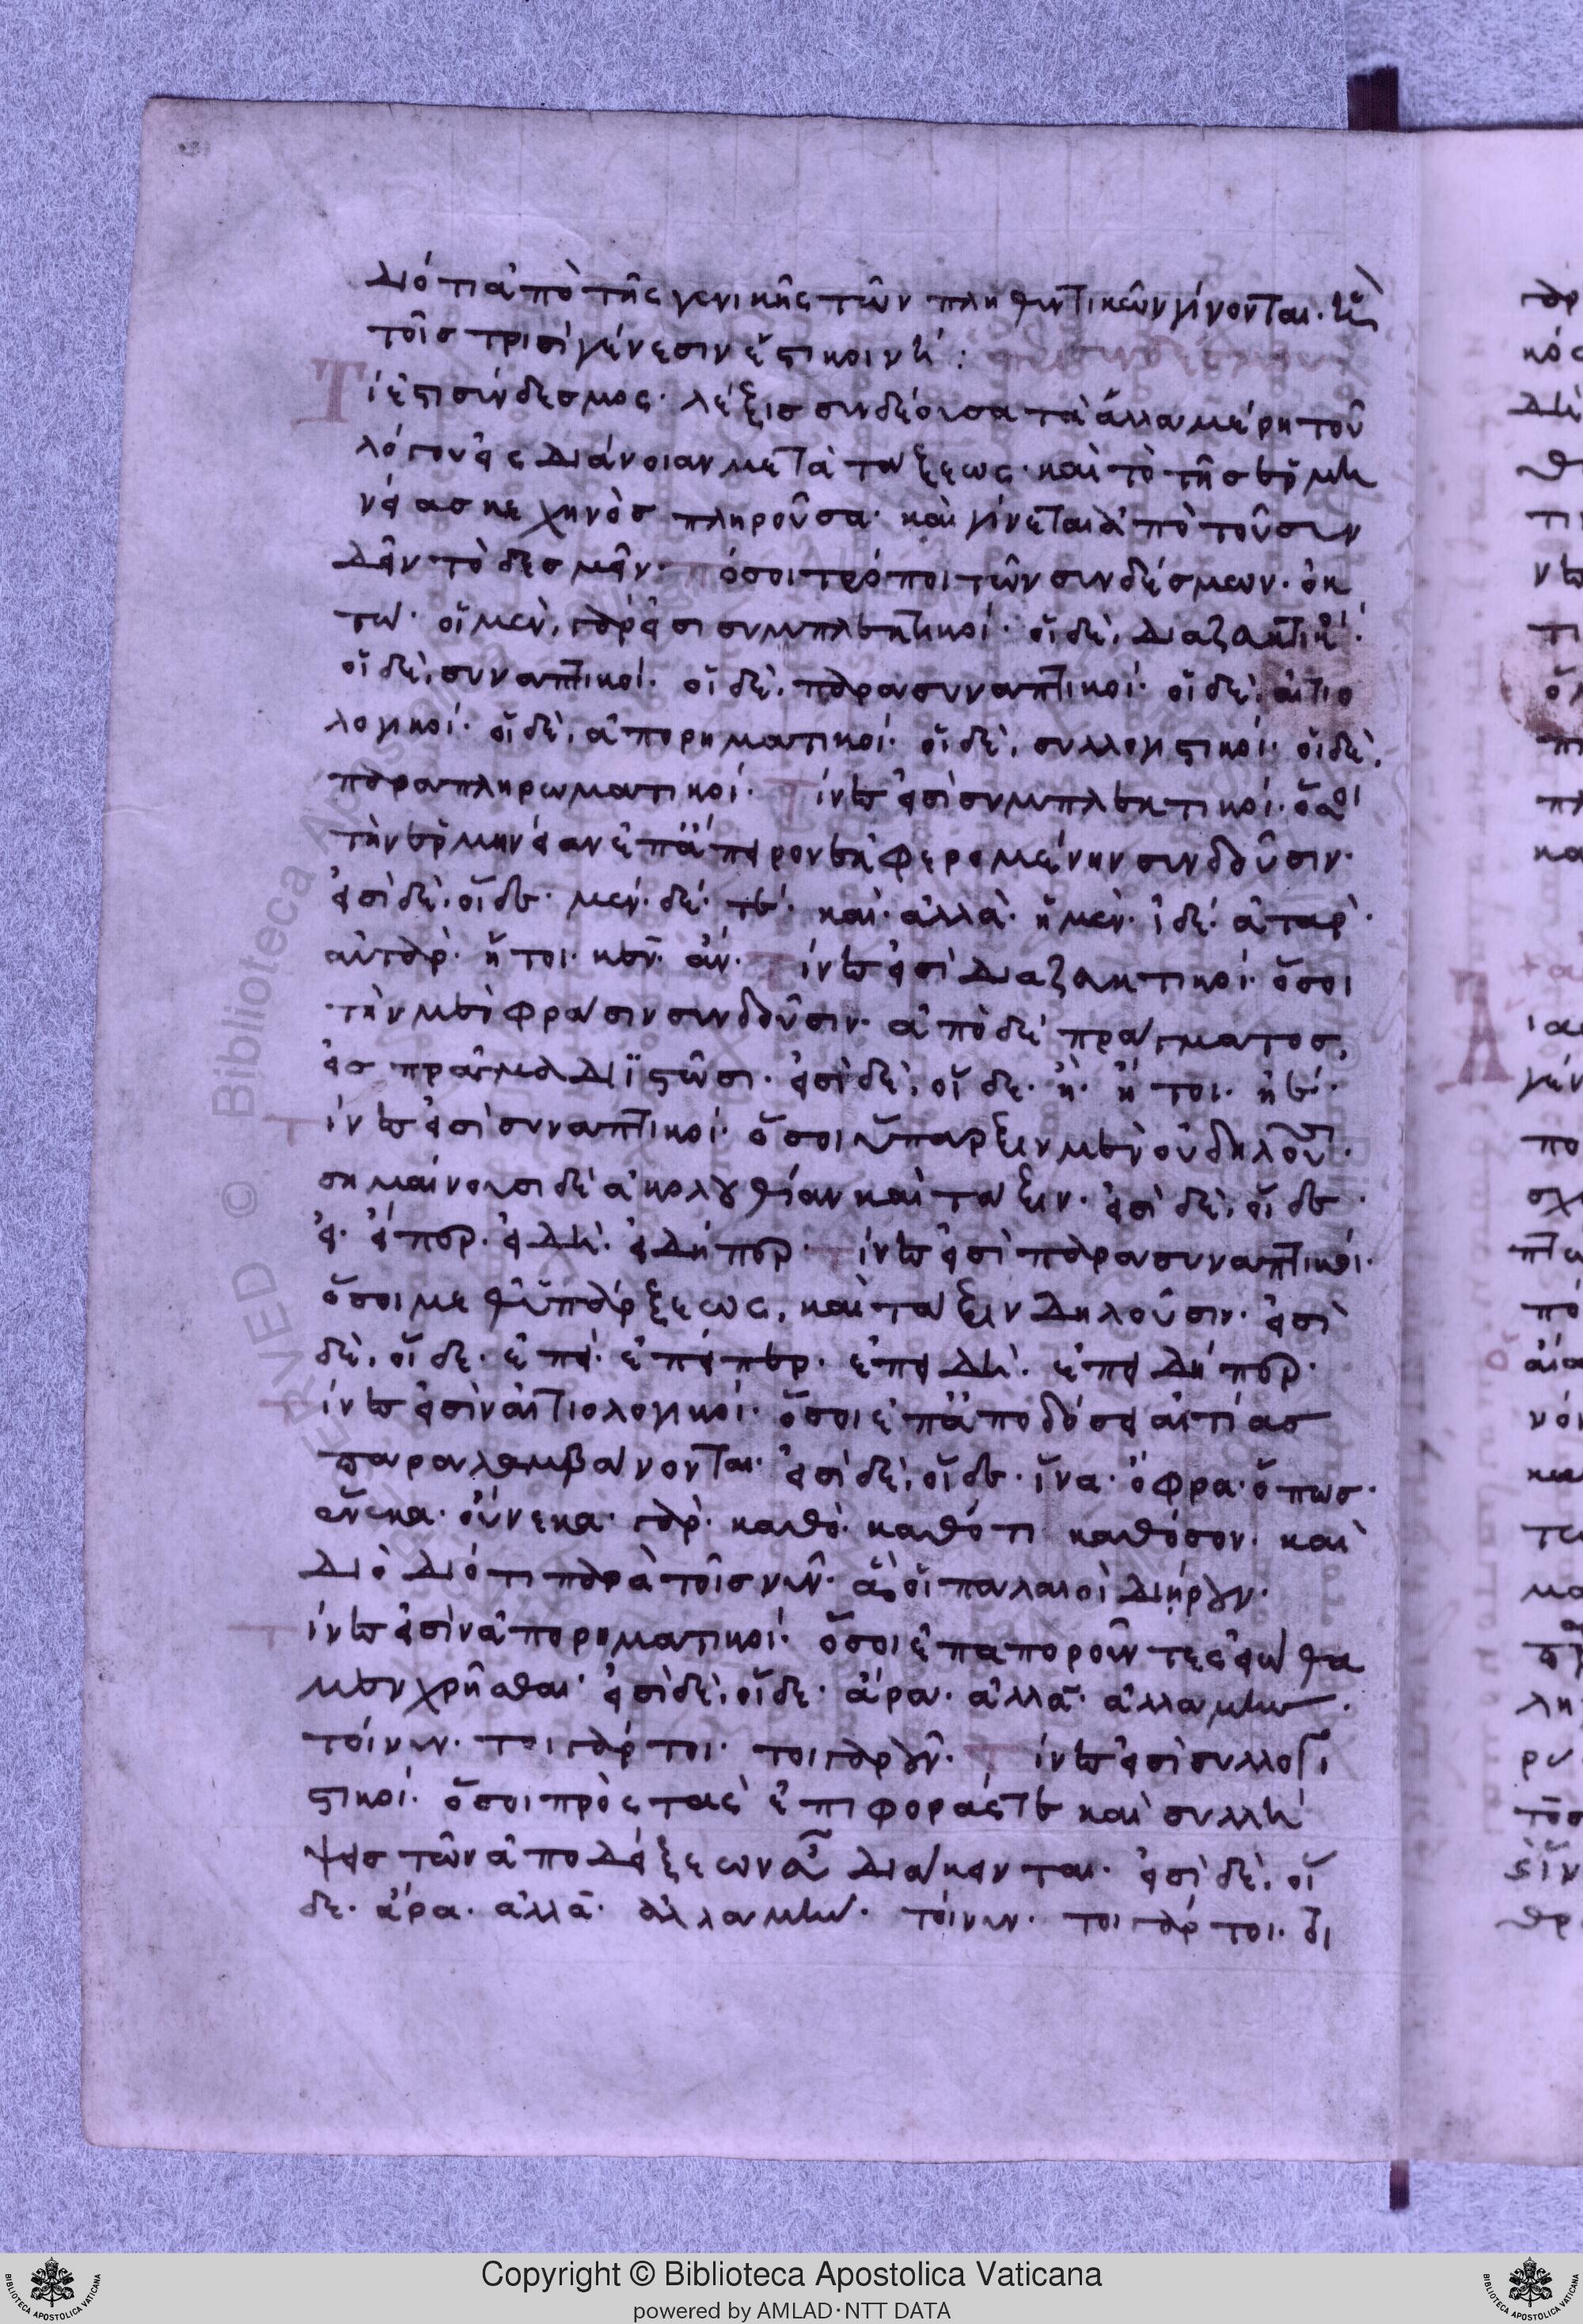 διότι ἀπὸ τῆς γενικῆς τῶν πληθυντικῶν γίνονται· ἐν
τοῖσ τρισὶ γένεσιν ἐπίκοινοι :
Τί ἐστι σύνδεσμος· λέξισ συνδέουσα τὰ ἄλλα μέρη τοῦ
λόγου εἰς διάνοιαν μετὰ τάξεως· καὶ τὸ τῆσ ἑρμη
νείασ κεχηνὸσ πληροῦσα· καὶ γίνεται ἀπὸ τοῦ συν
δεῖν τὸ δεσμεῖν· πόσοι τρόποι τῶν συνδέσμων· ὀκ
τώ· οἱ μὲν, γάρ εἰσι συμπλεκτικοί· οἱ δὲ, διαζευκτικοί·
οἱ δὲ, συναπτικοί· οἱ δὲ, παρασυναπτικοί· οἱ δὲ, αἰτιο
λογικοί· οἱ δὲ, ἀπορηματικοί· οἱ δὲ, συλλογιστικοί· οἱ δὲ,
παραπληρωματικοί· Τίνες εἰσὶ συμπλεκτικοί· ὅσοι
τὴν ἑρμηνείαν ἐπ' ἄπειρον ἐκφερομένην συνδέουσιν·
εἰσὶ δὲ, οἵδε· μέν· δέ· τέ· καὶ· ἀλλὰ· ἠμὲν· ἰδέ· ἀτὰρ·
αὐτὰρ· ἤτοι· κεν· ἄν· Τίνες εἰσὶ διαζευκτικοί· ὅσοι
τὴν μὲν φράσιν συνδέουσιν· ἀπὸ δὲ πράγματοσ,
εἰσ πρᾶγμα διϊστῶσι· εἰσὶ δὲ, οἵδε· ἢ· ἤτοι· ἠέ·
Τίνες εἰσὶ συναπτικοί· ὅσοι ὕπαρξιν μὲν οὐ δηλοῦσι·
σημαίνουσι δὲ ἀκολουθίαν καὶ τάξιν· εἰσὶ δὲ, οἵδε·
εἰ· εἴπερ· εἰ δὴ· εἰ δήπερ· Τίνες εἰσὶ παρασυναπτικοί·
ὅσοι μεθ' ὑπάρξεως, καὶ τάξιν δηλοῦσιν· εἰσὶ
δὲ, οἵδε· ἐπεί· ἐπείπερ· ἐπειδὴ· ἐπειδήπερ·
Τίνες εἰσὶν αἰτιολογικοί· ὅσοι ἐπ' ἀποδόσει αἰτίασ
παραλαμβάνονται· εἰσὶ δὲ, οἵδε· ἵνα· ὄφρα· ὅπωσ·
ἕνεκα· οὕνεκα· γάρ· καθὸ· καθότι καθόσον· καὶ
διὸ διότι παρὰ τοῖσ νῦν· ἃς οἱ παλαιοὶ διῄρουν·
Τίνες εἰσὶν ἀπορηματικοί· ὅσοι ἐπαποροῦντες εἰώθα
μεν χρῆσθαι· εἰσὶ δὲ, οἵδε· ἆρα· ἀλλὰ· ἀλλὰ μὴν·
τοίνυν· τοιγάρτοι· τοιγαροῦν· Τίνες εἰσὶ συλλογι
στικοί· ὅσοι πρὸς τὰς ἐπιφοράς τε καὶ συλλή
ψεισ τῶν ἀποδείξεων εὖ διάκεινται· εἰσὶ δὲ, οἵ
δε· ἄρα· ἀλλὰ· ἀλλὰ μὴν· τοίνυν· τοιγάρτοι· οἱ
Copyright © Biblioteca Apostolica Vaticana
powered by AMLAD·NTT DATA